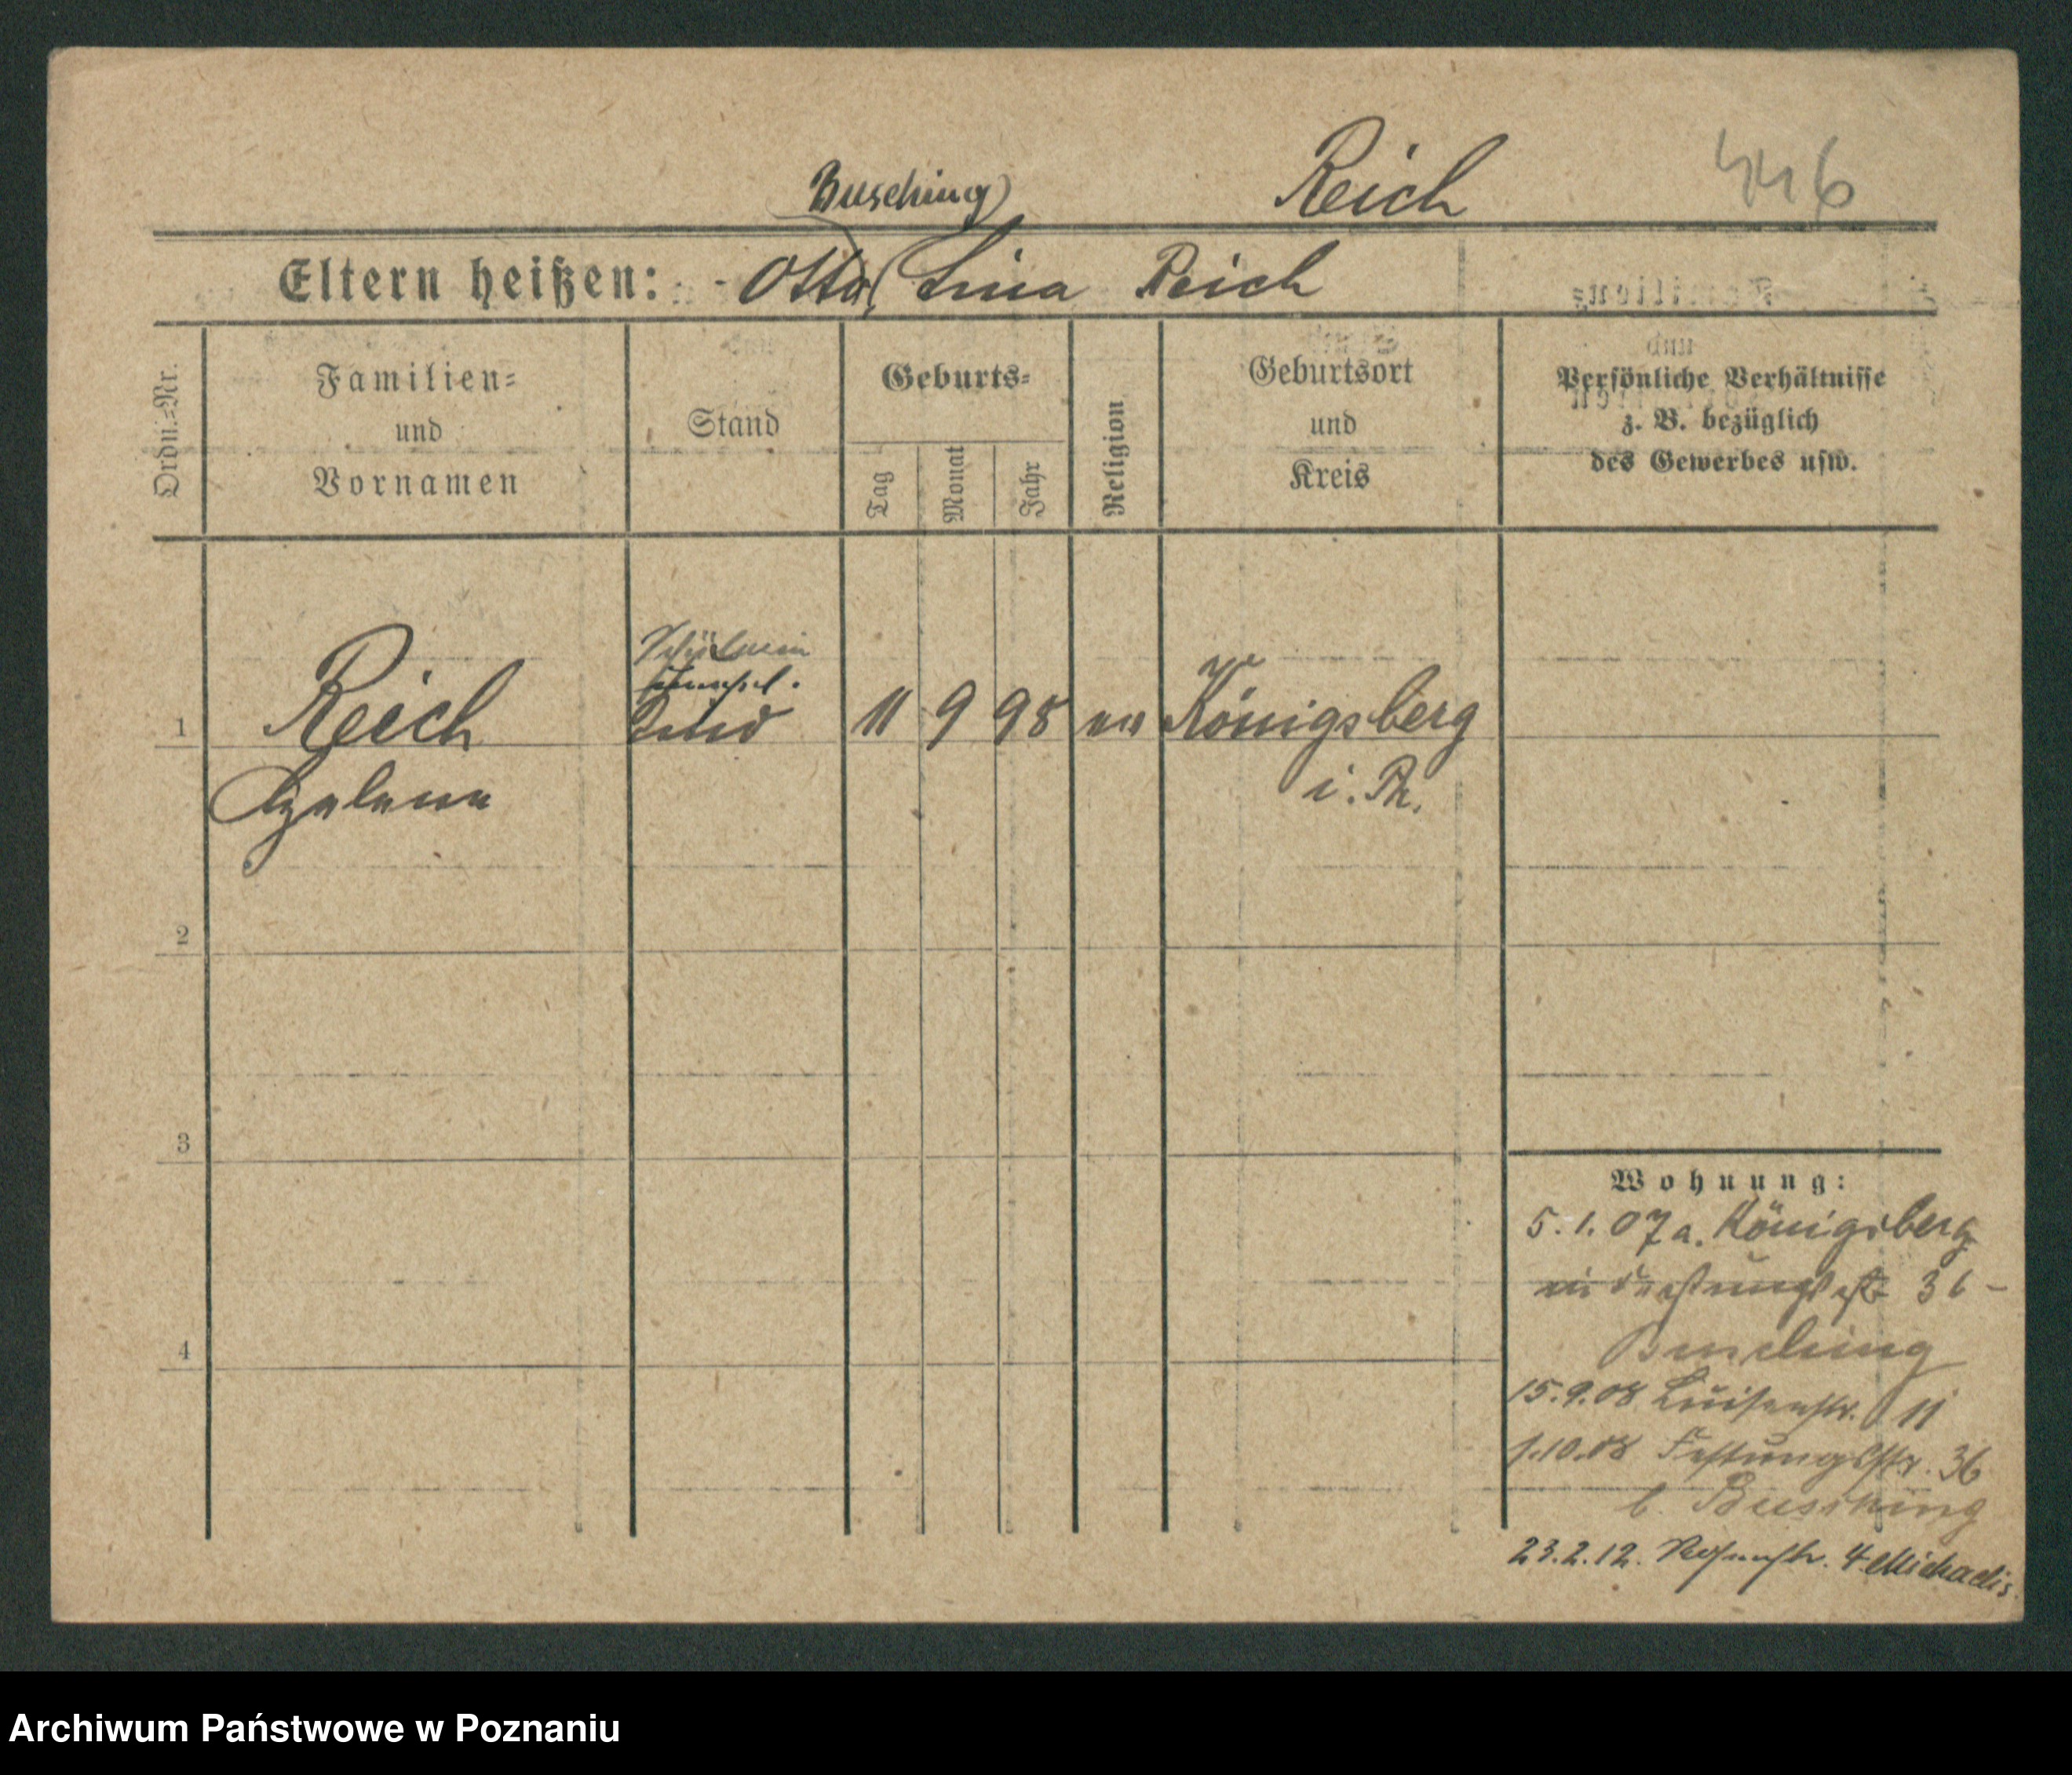 Reich
446
Busching
Eltern heißen: Otto Lina Reich
Ordn.=Nr.
Familien=
und
Vornamen
Stand
Geburts=
Tag
Monat
Jahr
Religion
Geburtsort
und
Kreis
Persönliche Verhältnisse
z. B. bezüglich
des Gewerbes usw.
Schülerin
1 Reich Kind 11 9 98 ev Königsberg
Helene i. Pr.
2
3
4
Wohnung:
5.1.07 a. Königsberg
36
Busching
15.9.08 Luisenstr. 11
1.10.08 Festungsstr. 36
b. Busching
23.2.12. 4 Michaelis
Archiwum Państwowe w Poznaniu